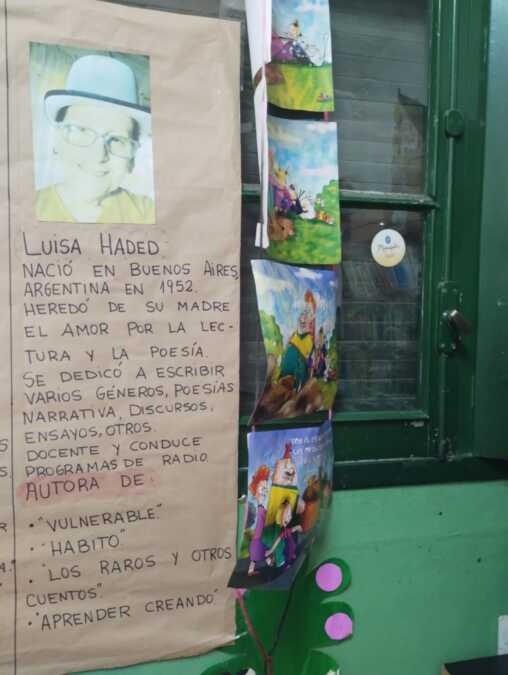 LUISA HADED.
NACIÓ EN BUENOS AIRES,
ARGENTINA EN 1952.
HEREDÓ DE SU MADRE
EL AMOR POR LA LEC-
TURA Y LA POESÍA.
SE DEDICÓ A ESCRIBIR
VARIOS GÉNEROS, POESÍAS
NARRATIVA, DISCURSOS,
ENSAYOS, OTROS.
DOCENTE Y CONDUCE
PROGRAMAS DE RADIO.
AUTORA DE:
• "VULNERABLE"
• "HABITO"
• "LOS RAROS Y OTROS
CUENTOS".
• "APRENDER CREANDO"